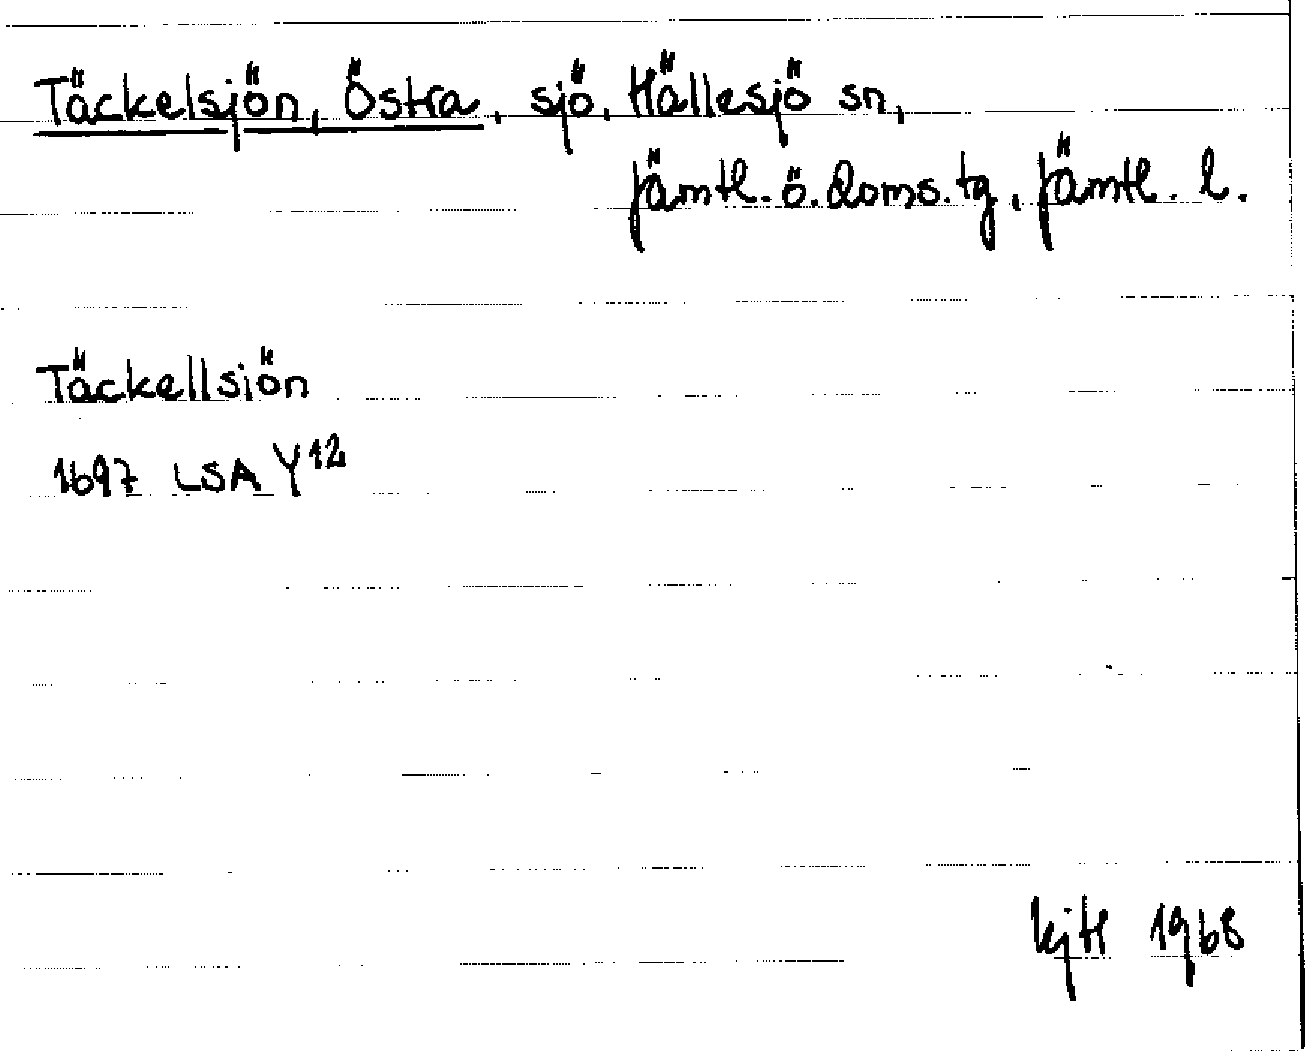 Täckelsjön, Östra, sjö, Hällesjö sn,
Jämtl. ö. doms. tg, Jämtl. l.
Täckellsiön
1697 LSA Y12
KjH 1968